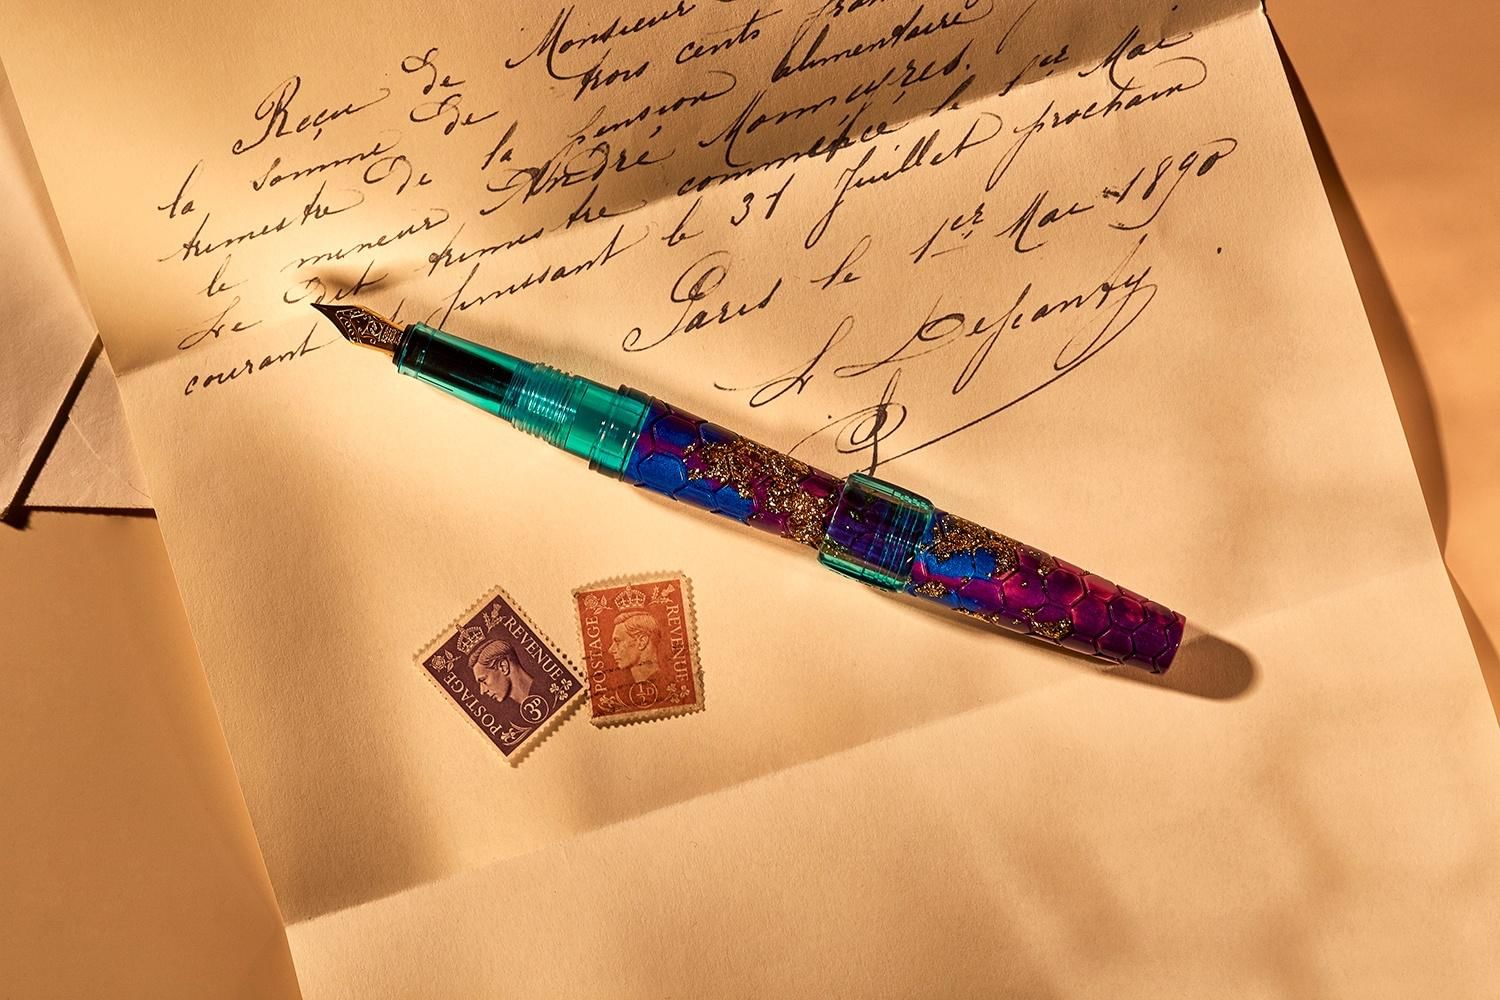 Reçu de Monsieur
la somme de trois cents francs
trimestre de la pension alimentaire
le mineur André
Le dit trimestre commence le 1er Mai
courant finissant le 31 Juillet prochain
Paris le 1er Mai 1890
POSTAGE REVENUE
3D
POSTAGE REVENUE
½D